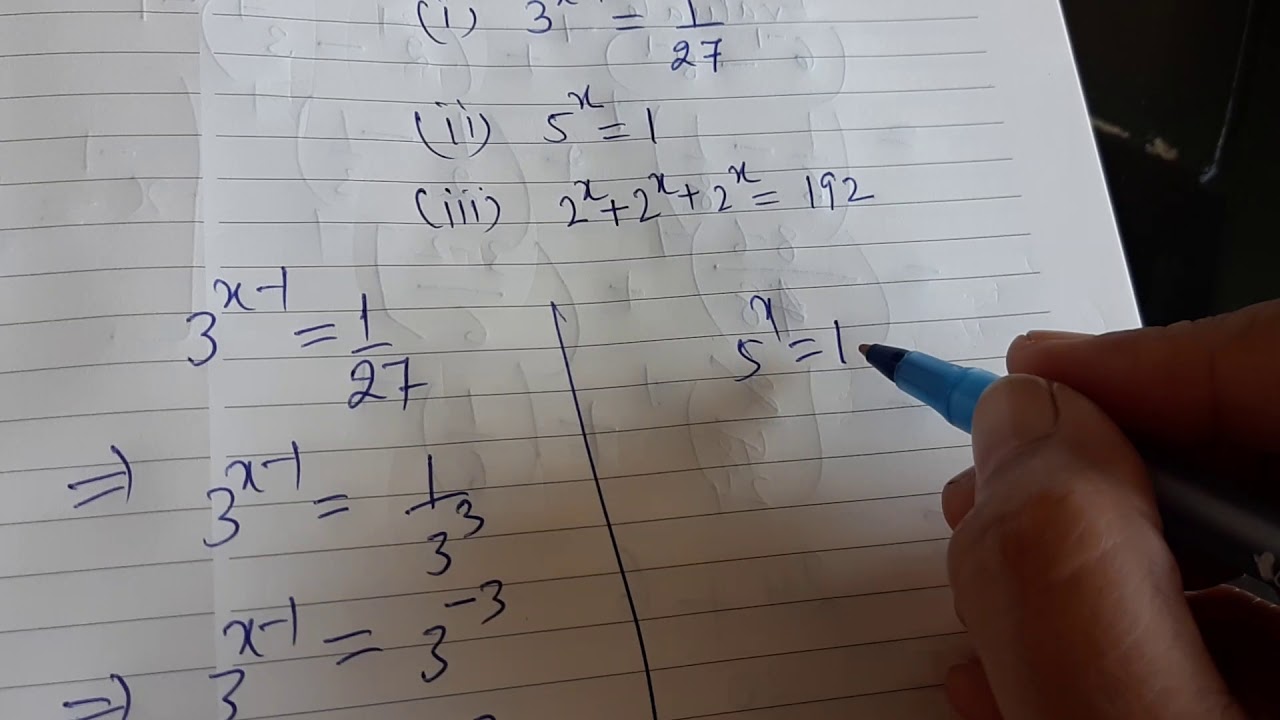 (i) 3^x = 1/27
(ii) 5^x = 1
(iii) 2^x + 2^x + 2^x = 192
3^(x-1) = 1/27
⇒ 3^(x-1) = 1/3^3
⇒ 3^(x-1) = 3^(-3)
5^x = 1